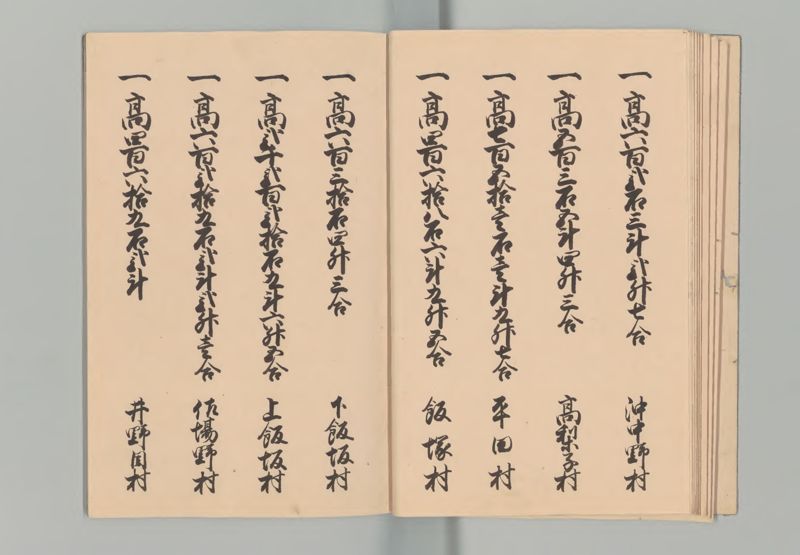 一 高六百弐石三斗弐升七合 沖中野村
一 高五百三石五斗四升三合 高梨子村
一 高七百五拾壱石壱斗九升七合 平田村
一 高四百六拾八石六斗九升五合 飯塚村
一 高六百三拾石四升三合 下飯坂村
一 高弐千弐百弐拾石九斗六升五合 上飯坂村
一 高六百弐拾九石弐斗弐升壱合 佐場野村
一 高四百六拾九石弐斗 井野目村